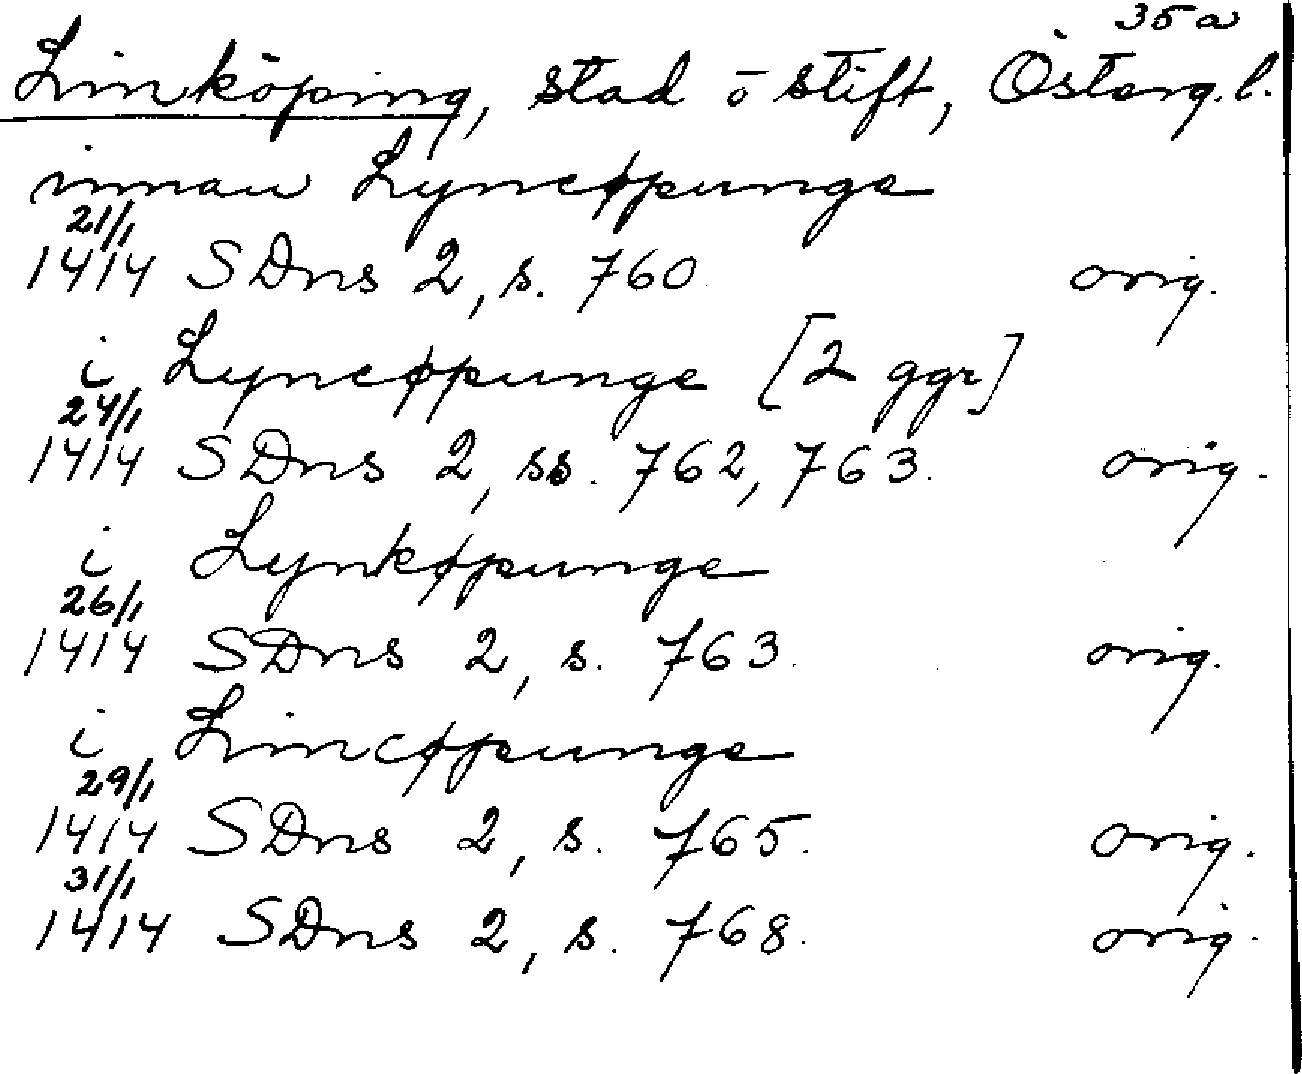 35 a
Linköping, stad o stift, Österg. l.
innan Lyncøpunge
21/1
1414 SDns 2, s. 760 orig.
i Lyncøpunge [2 ggr]
24/1
1414 SDns 2, ss. 762, 763. orig.
i Lynkøpunge
26/1
1414 SDns 2, s. 763. orig.
i Lincøpunge
29/1
1414 SDns 2, s. 765. orig.
31/1
1414 SDns 2, s. 768. orig.